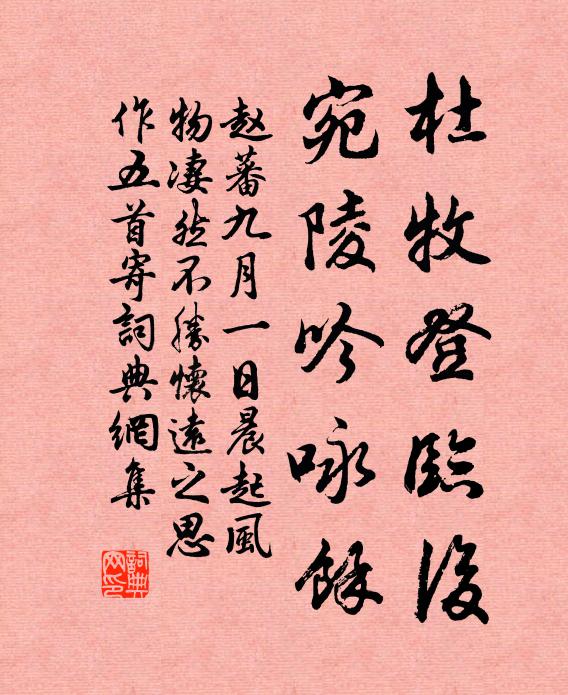 杜牧登臨後
宛陵吟咏餘
赵蕃九月一日晨起風
物凄然不勝懷遠之思
作五首寄詞典網集
詞典
网印